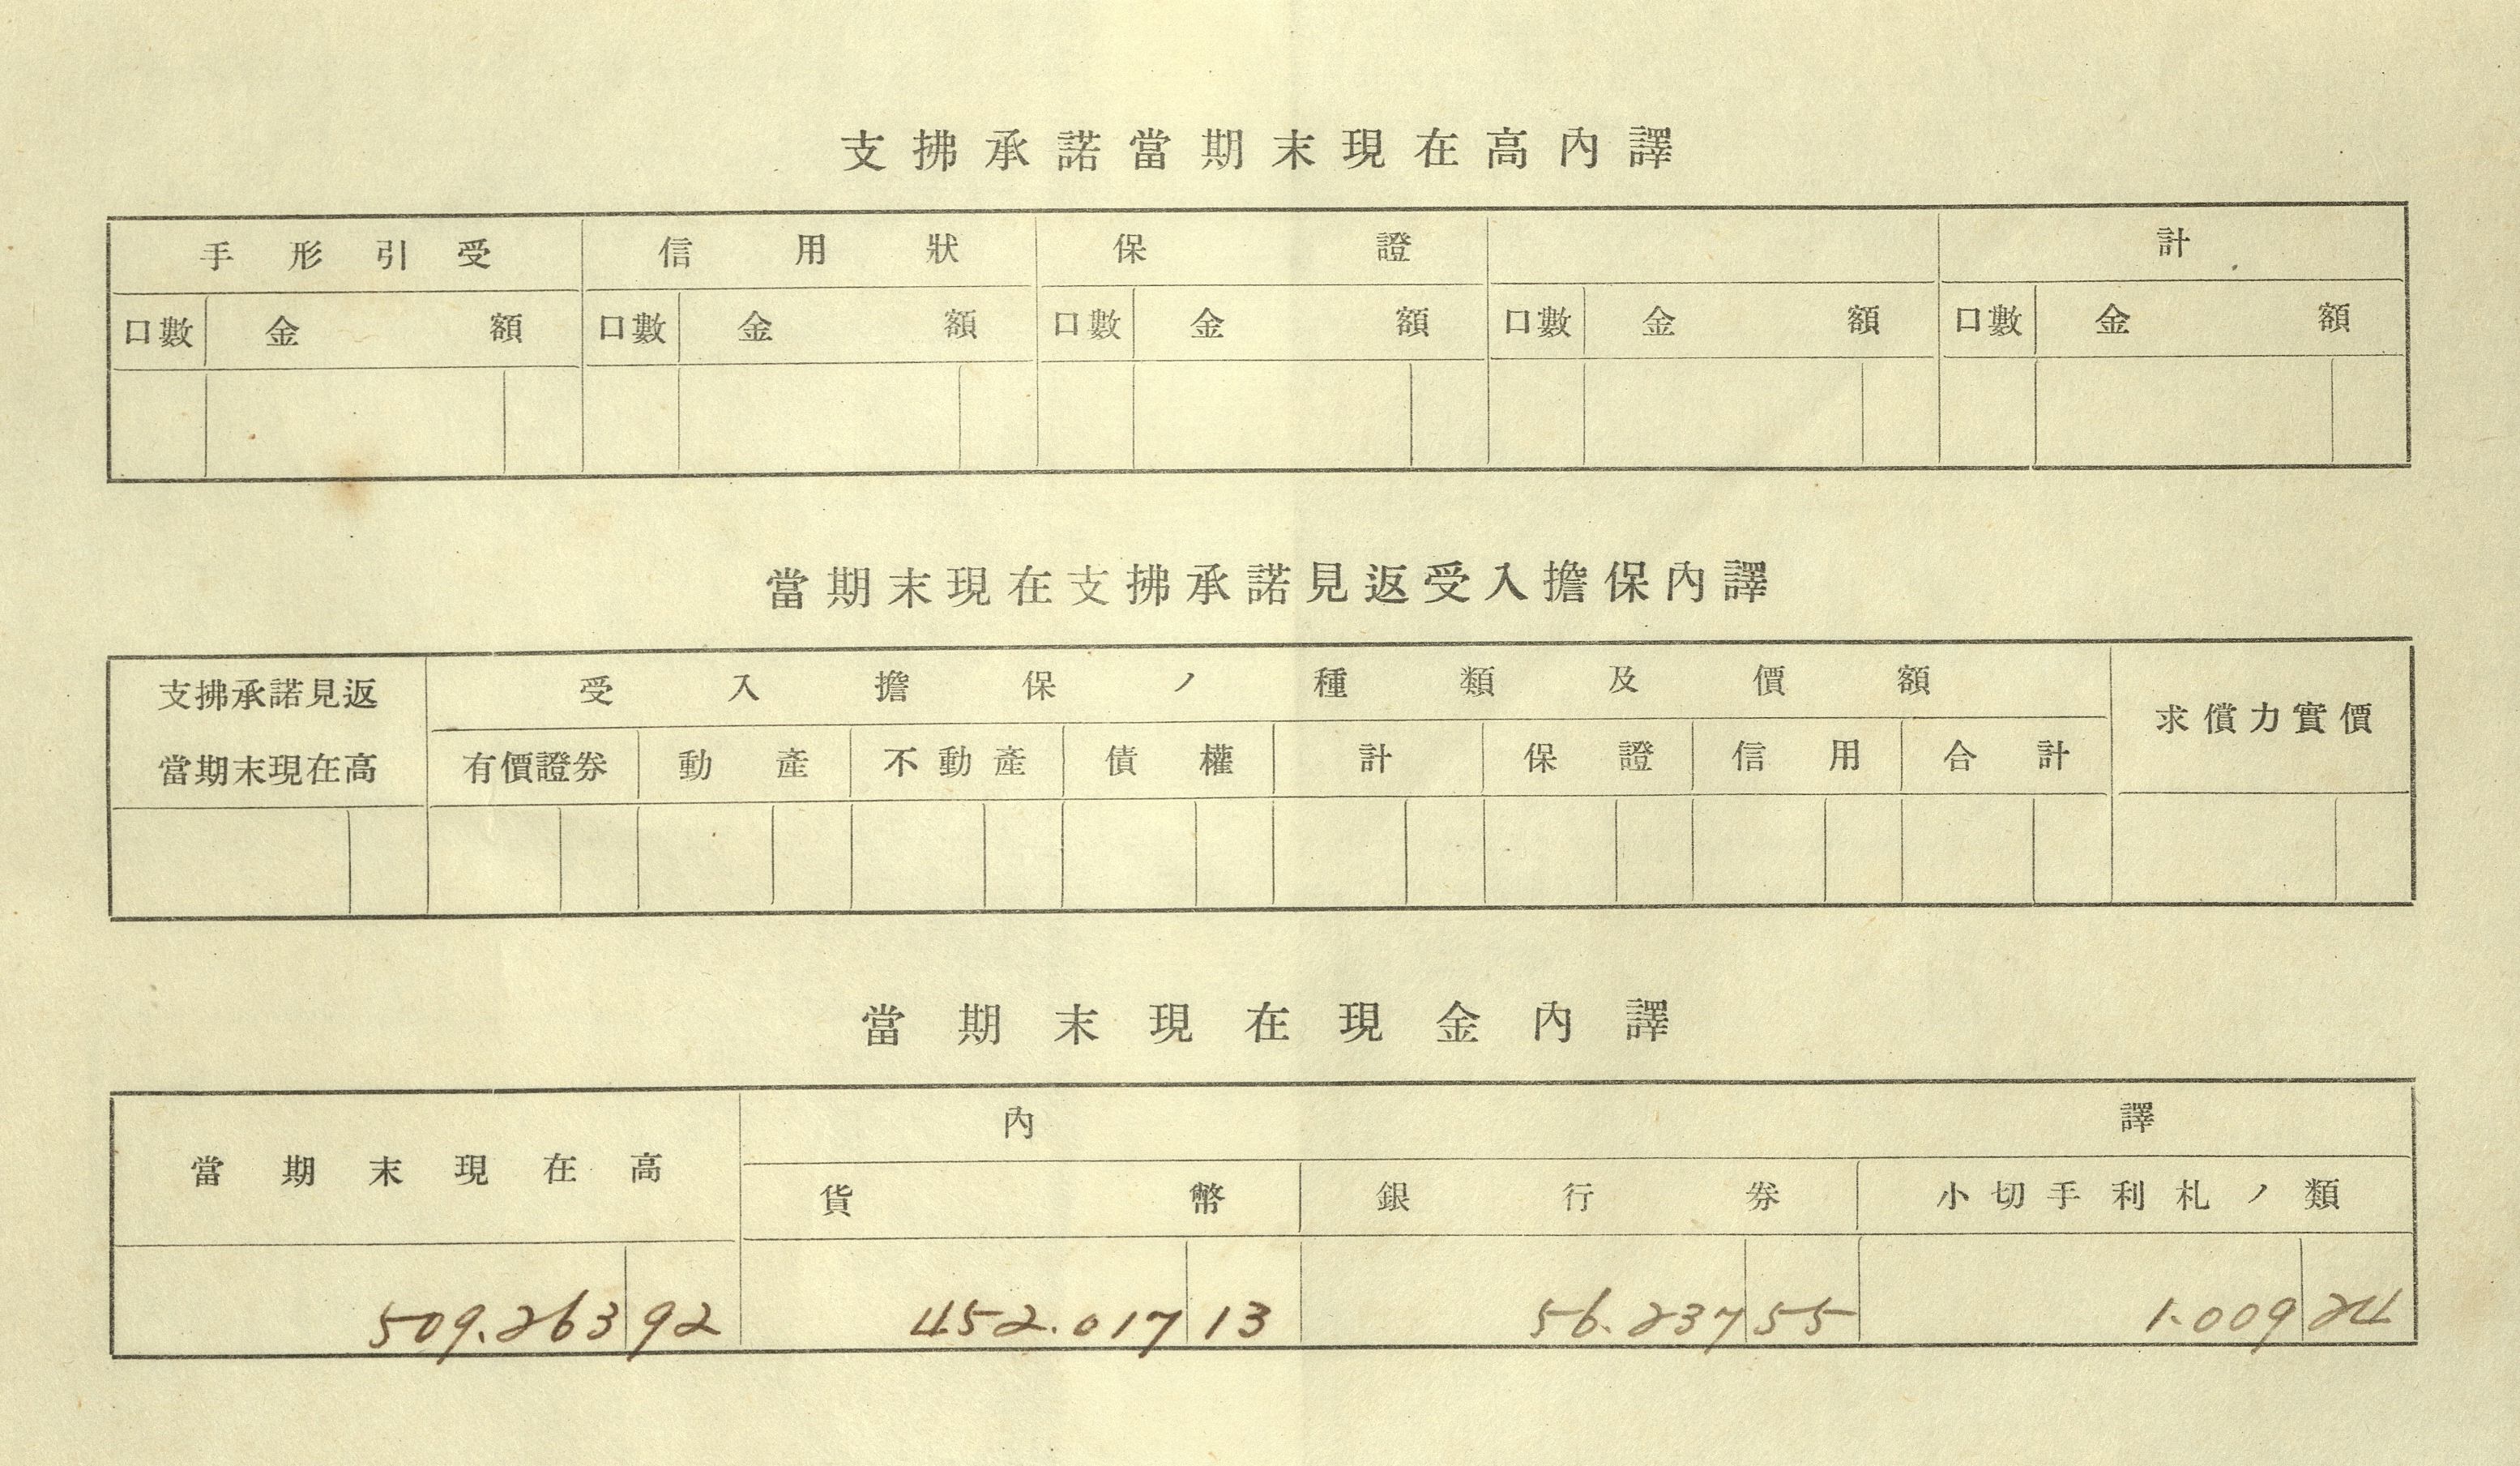 支拂承諾當期末現在高內譯
手形引受 信用狀 保證 計
口數 金額 口數 金額 口數 金額 口數 金額 口數 金額
當期末現在支拂承諾見返受入擔保內譯
支拂承諾見返 受入擔保ノ種類及價額 求償力實價
當期末現在高 有價證券 動產 不動產 債權 計 保證 信用 合計
當期末現在現金內譯
當期末現在高 內譯
貨幣 銀行券 小切手利札ノ類
509.263 92 452.017 13 56.237 55 1.009 24